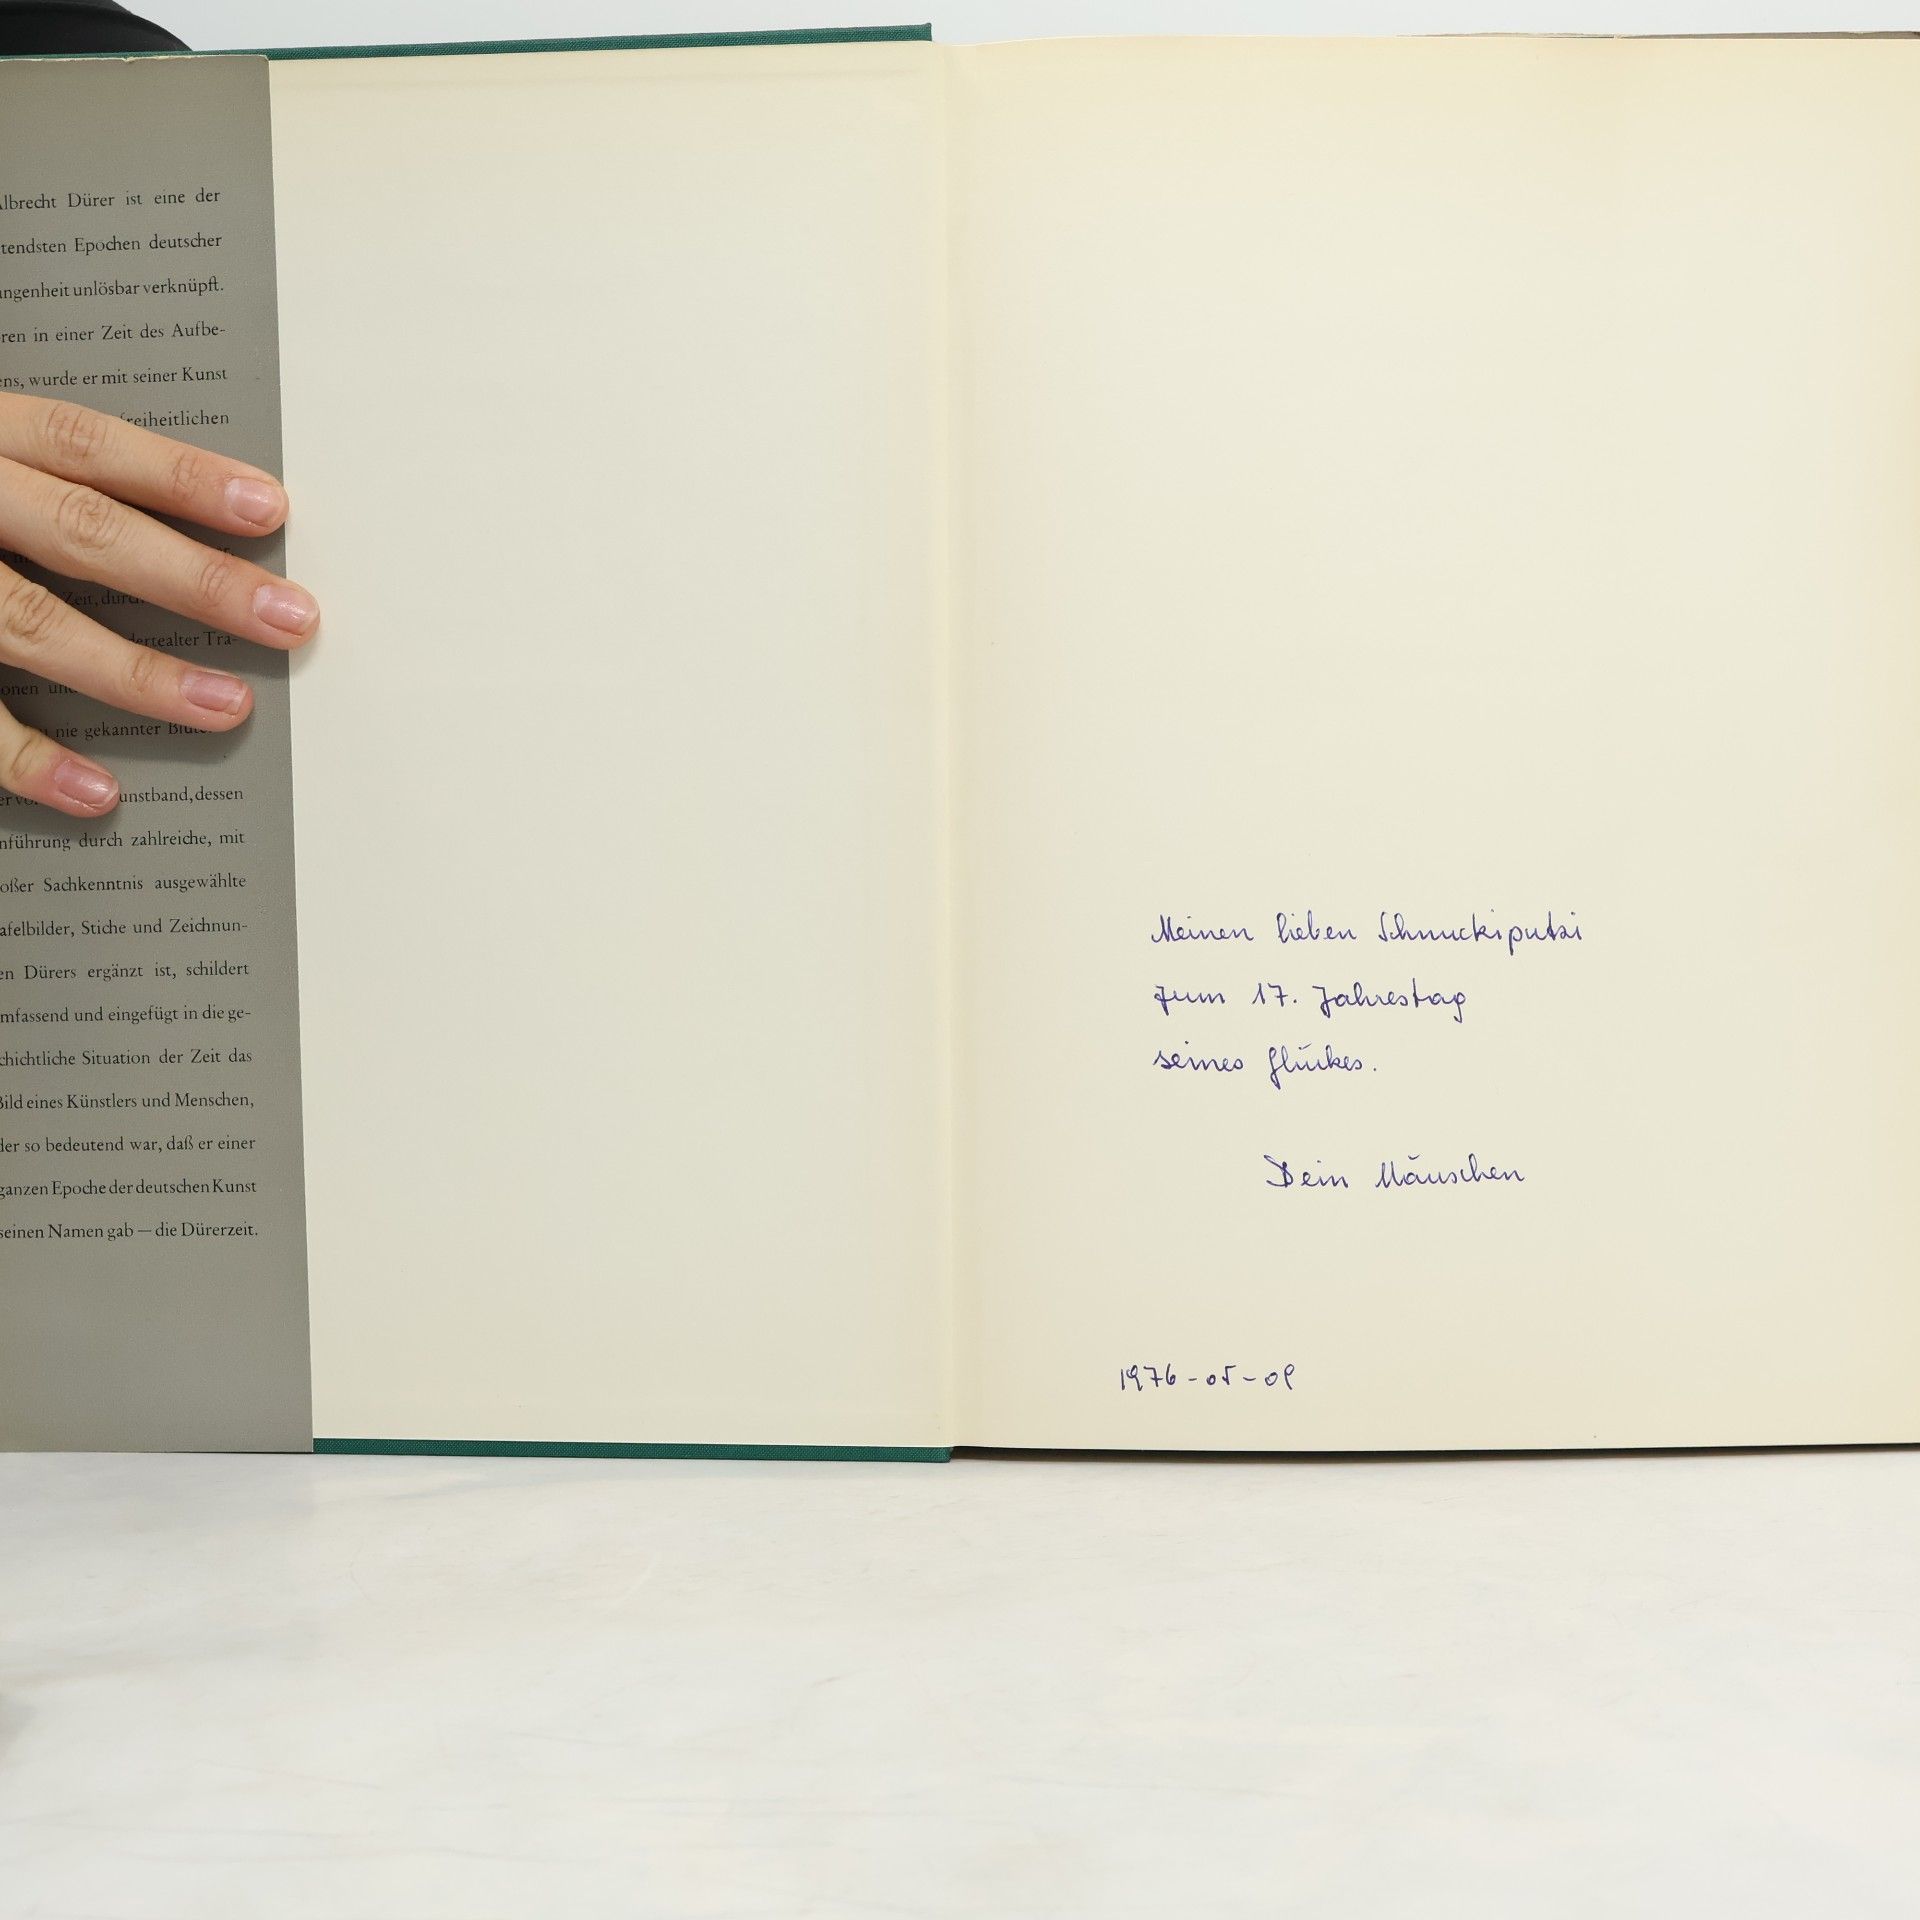 Albrecht Dürer ist eine der
tendsten Epochen deutscher
angenheit unlösbar verknüpft.
ren in einer Zeit des Aufbe-
ens, wurde er mit seiner Kunst
freiheitlichen
Zeit, durch
dertealter Tra-
onen und
nie gekannter Blüte
er vor unstband, dessen
nführung durch zahlreiche, mit
oßer Sachkenntnis ausgewählte
afelbilder, Stiche und Zeichnun-
en Dürers ergänzt ist, schildert
mfassend und eingefügt in die ge-
chichtliche Situation der Zeit das
Bild eines Künstlers und Menschen,
der so bedeutend war, daß er einer
ganzen Epoche der deutschen Kunst
seinen Namen gab — die Dürerzeit.
Meinen lieben Schnuckiputzi
zum 17. Jahrestag
seines Glückes.
Dein Mäuschen
1976-05-09